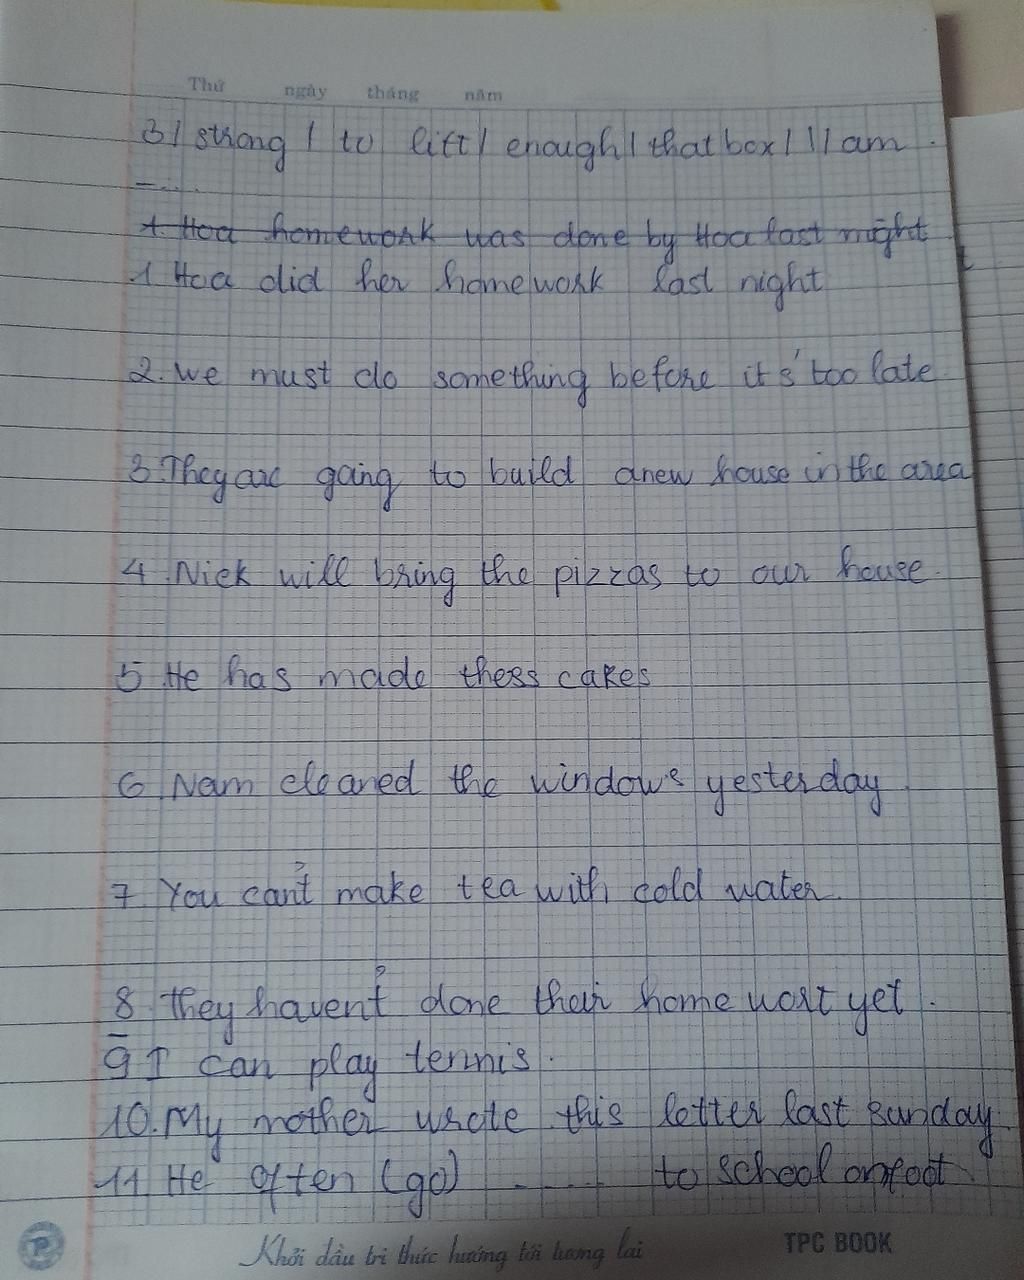 Thứ ngày tháng năm
3/ strong / to lift / enough / that box / I / am.
-....
1. Hoa homework was done by Hoa last night
1 Hoa did her homework last night
2. We must do something before it's too late.
3. They are going to build a new house in the area
4. Nick will bring the pizzas to our house.
5 He has made thess cakes
6 Nam cleaned the windows yesterday
7 You can't make tea with cold water.
8. they haven't done their home wort yet.
9 I can play tennis.
10. My mother wrote this letter last sunday.
11 He often (go) ..... to school on foot
Khởi đầu tri thức hướng tới tương lai TPC BOOK